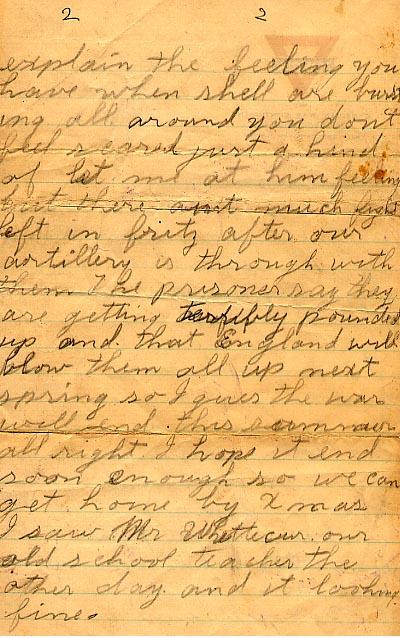 2 2
explain the feeling you
have when shell are burst
ing all around you dont
feel scared just a kind
of let me at him feeling
but there aint much fight
left in fritz after our
artillery is through with
them The prisoner say they
are getting terribly pounded
up and that England will
blow them all up next
spring so I gues the war
will end this summer
all right. I hope it end
soon enough so we can
get home by Xmas
I saw Mr our
old school teacher the
other day and it looking
fine.